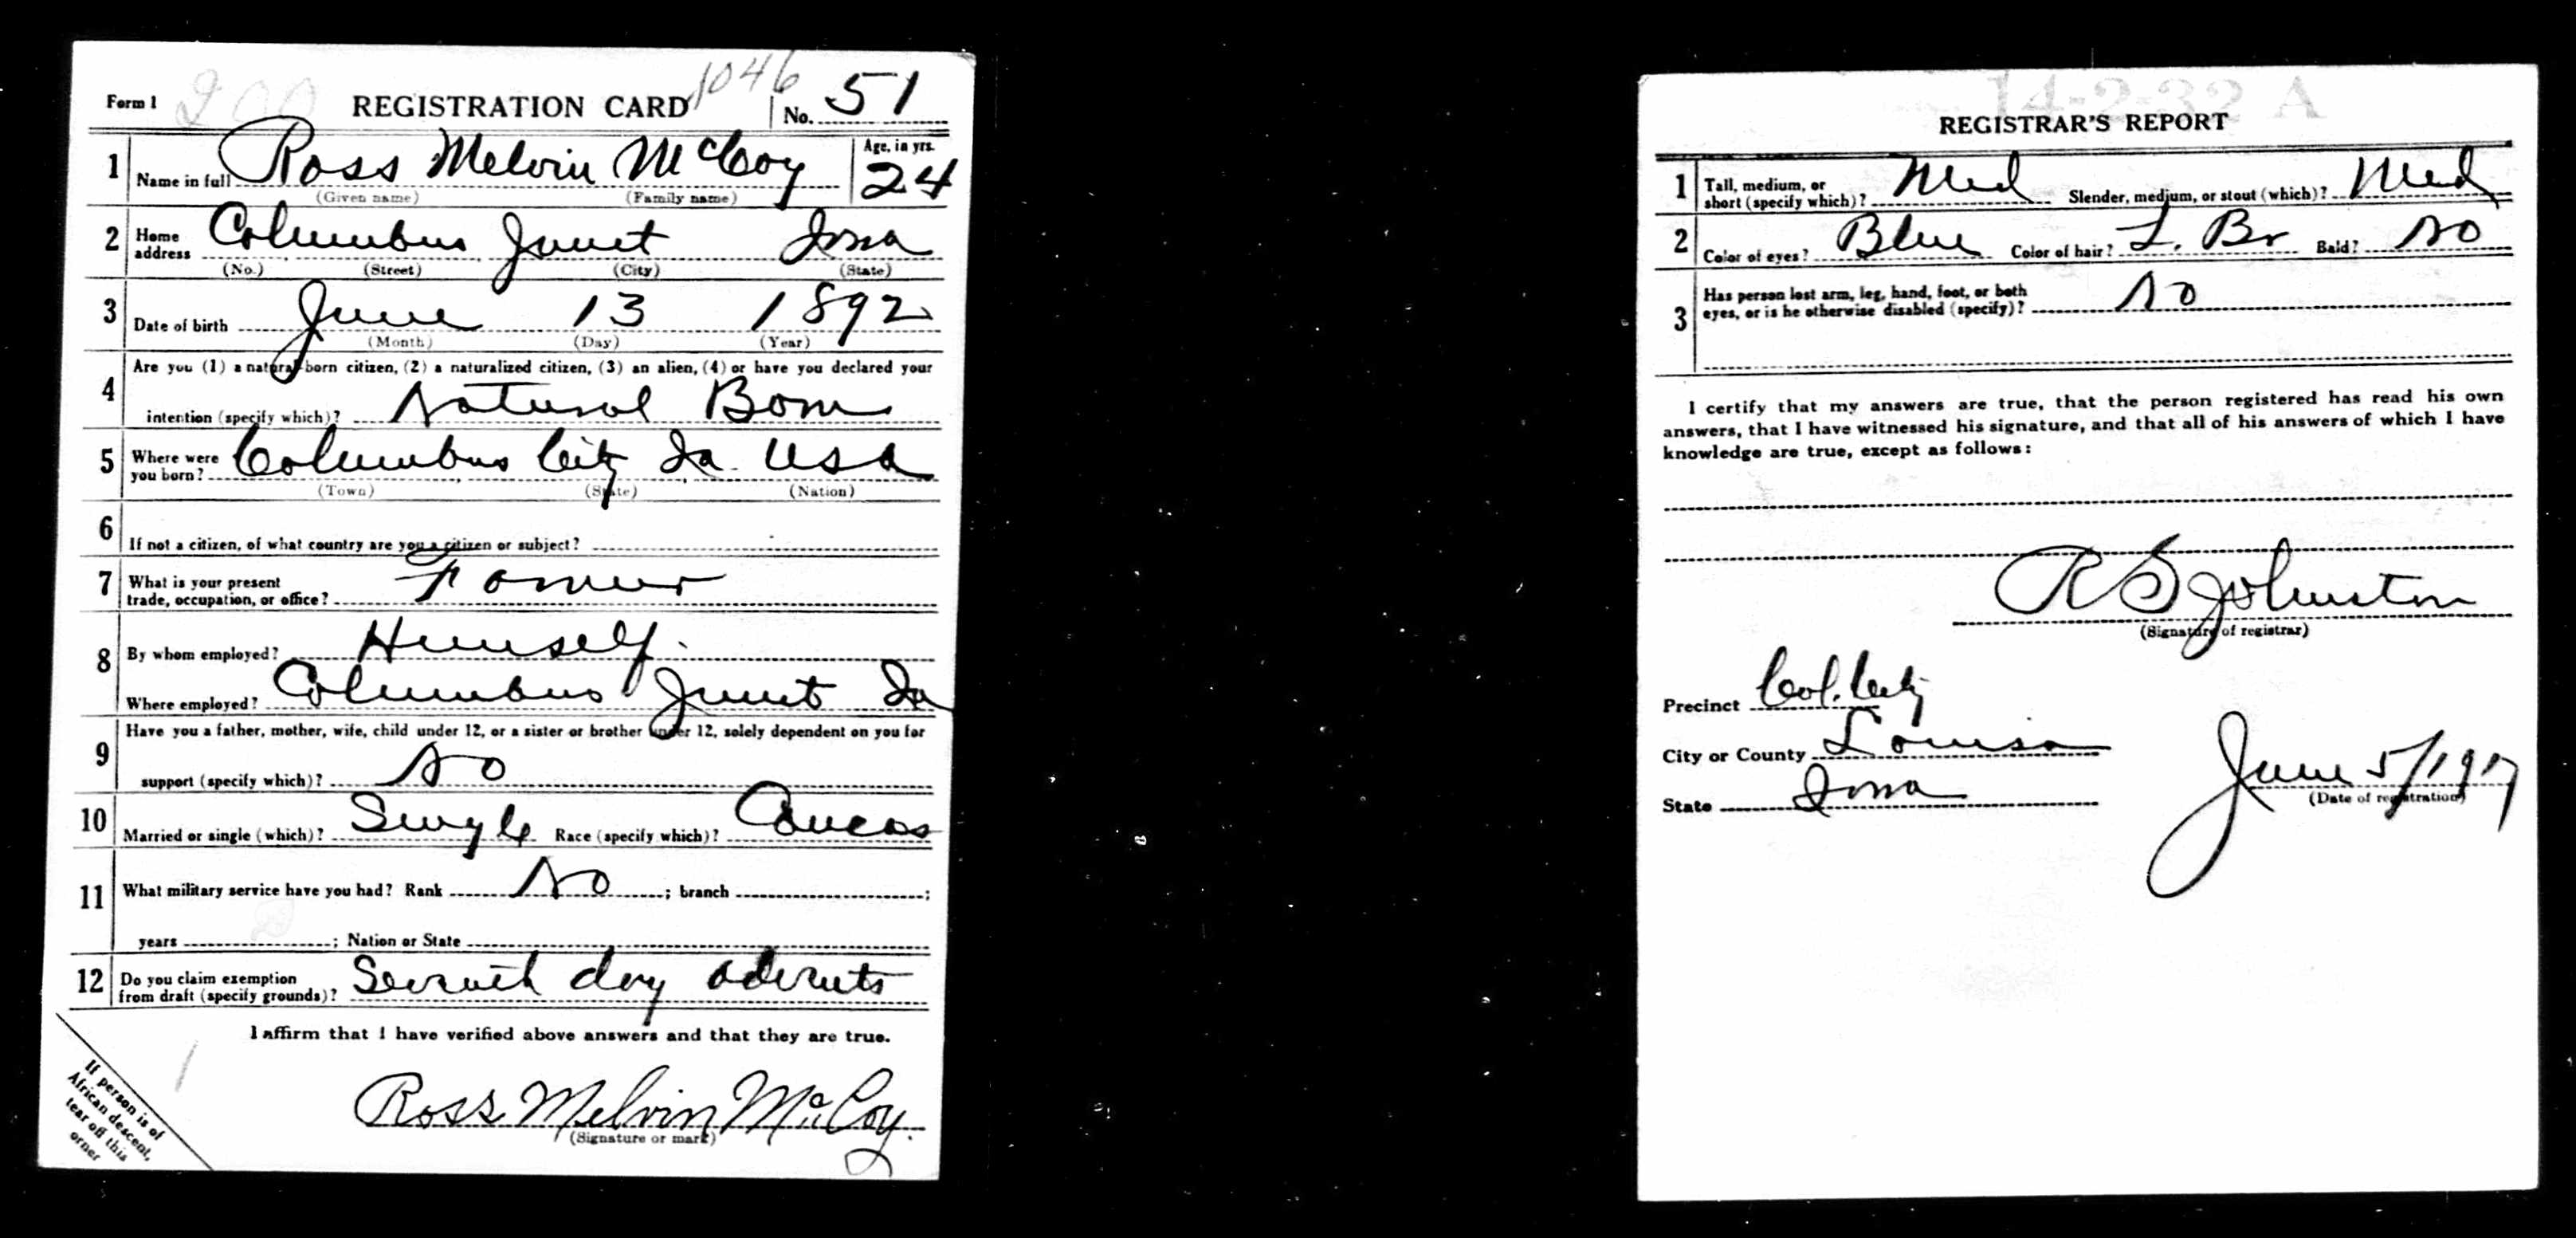 Form 1 200 REGISTRATION CARD 1046 No. 51
1 Name in full Ross Melvin McCoy Age, in yrs. 24
(Given name) (Family name)
2 Home address Columbus Junct Iowa
(No.) (Street) (City) (State)
3 Date of birth June 13 1892
(Month) (Day) (Year)
4 Are you (1) a natural-born citizen, (2) a naturalized citizen, (3) an alien, (4) or have you declared your
intention (specify which)? Natural Born
5 Where were you born? Columbus City Ia. USA
(Town) (State) (Nation)
6 If not a citizen, of what country are you a citizen or subject?
7 What is your present
trade, occupation, or office? Farmer
8 By whom employed? Himself.
Where employed? Columbus Junct Ia
9 Have you a father, mother, wife, child under 12, or a sister or brother under 12, solely dependent on you for
support (specify which)? No
10 Married or single (which)? Single Race (specify which)? Caucas
11 What military service have you had? Rank No ; branch ;
years ; Nation or State
12 Do you claim exemption
from draft (specify grounds)? Seventh day advents
I affirm that I have verified above answers and that they are true.
Ross Melvin McCoy.
(Signature or mark)
If person is of
African descent,
tear off this
orner
14-2-32 A
REGISTRAR'S REPORT
1 Tall, medium, or
short (specify which)? Med Slender, medium, or stout (which)? Med
2 Color of eyes? Blue Color of hair? L. Br Bald? No
3 Has person lost arm, leg, hand, foot, or both
eyes, or is he otherwise disabled (specify)? No
I certify that my answers are true, that the person registered has read his own
answers, that I have witnessed his signature, and that all of his answers of which I have
knowledge are true, except as follows:
R S Johnston
(Signature of registrar)
Precinct Col. City
City or County Louisa
State Iowa
June 5/1917
(Date of registration)